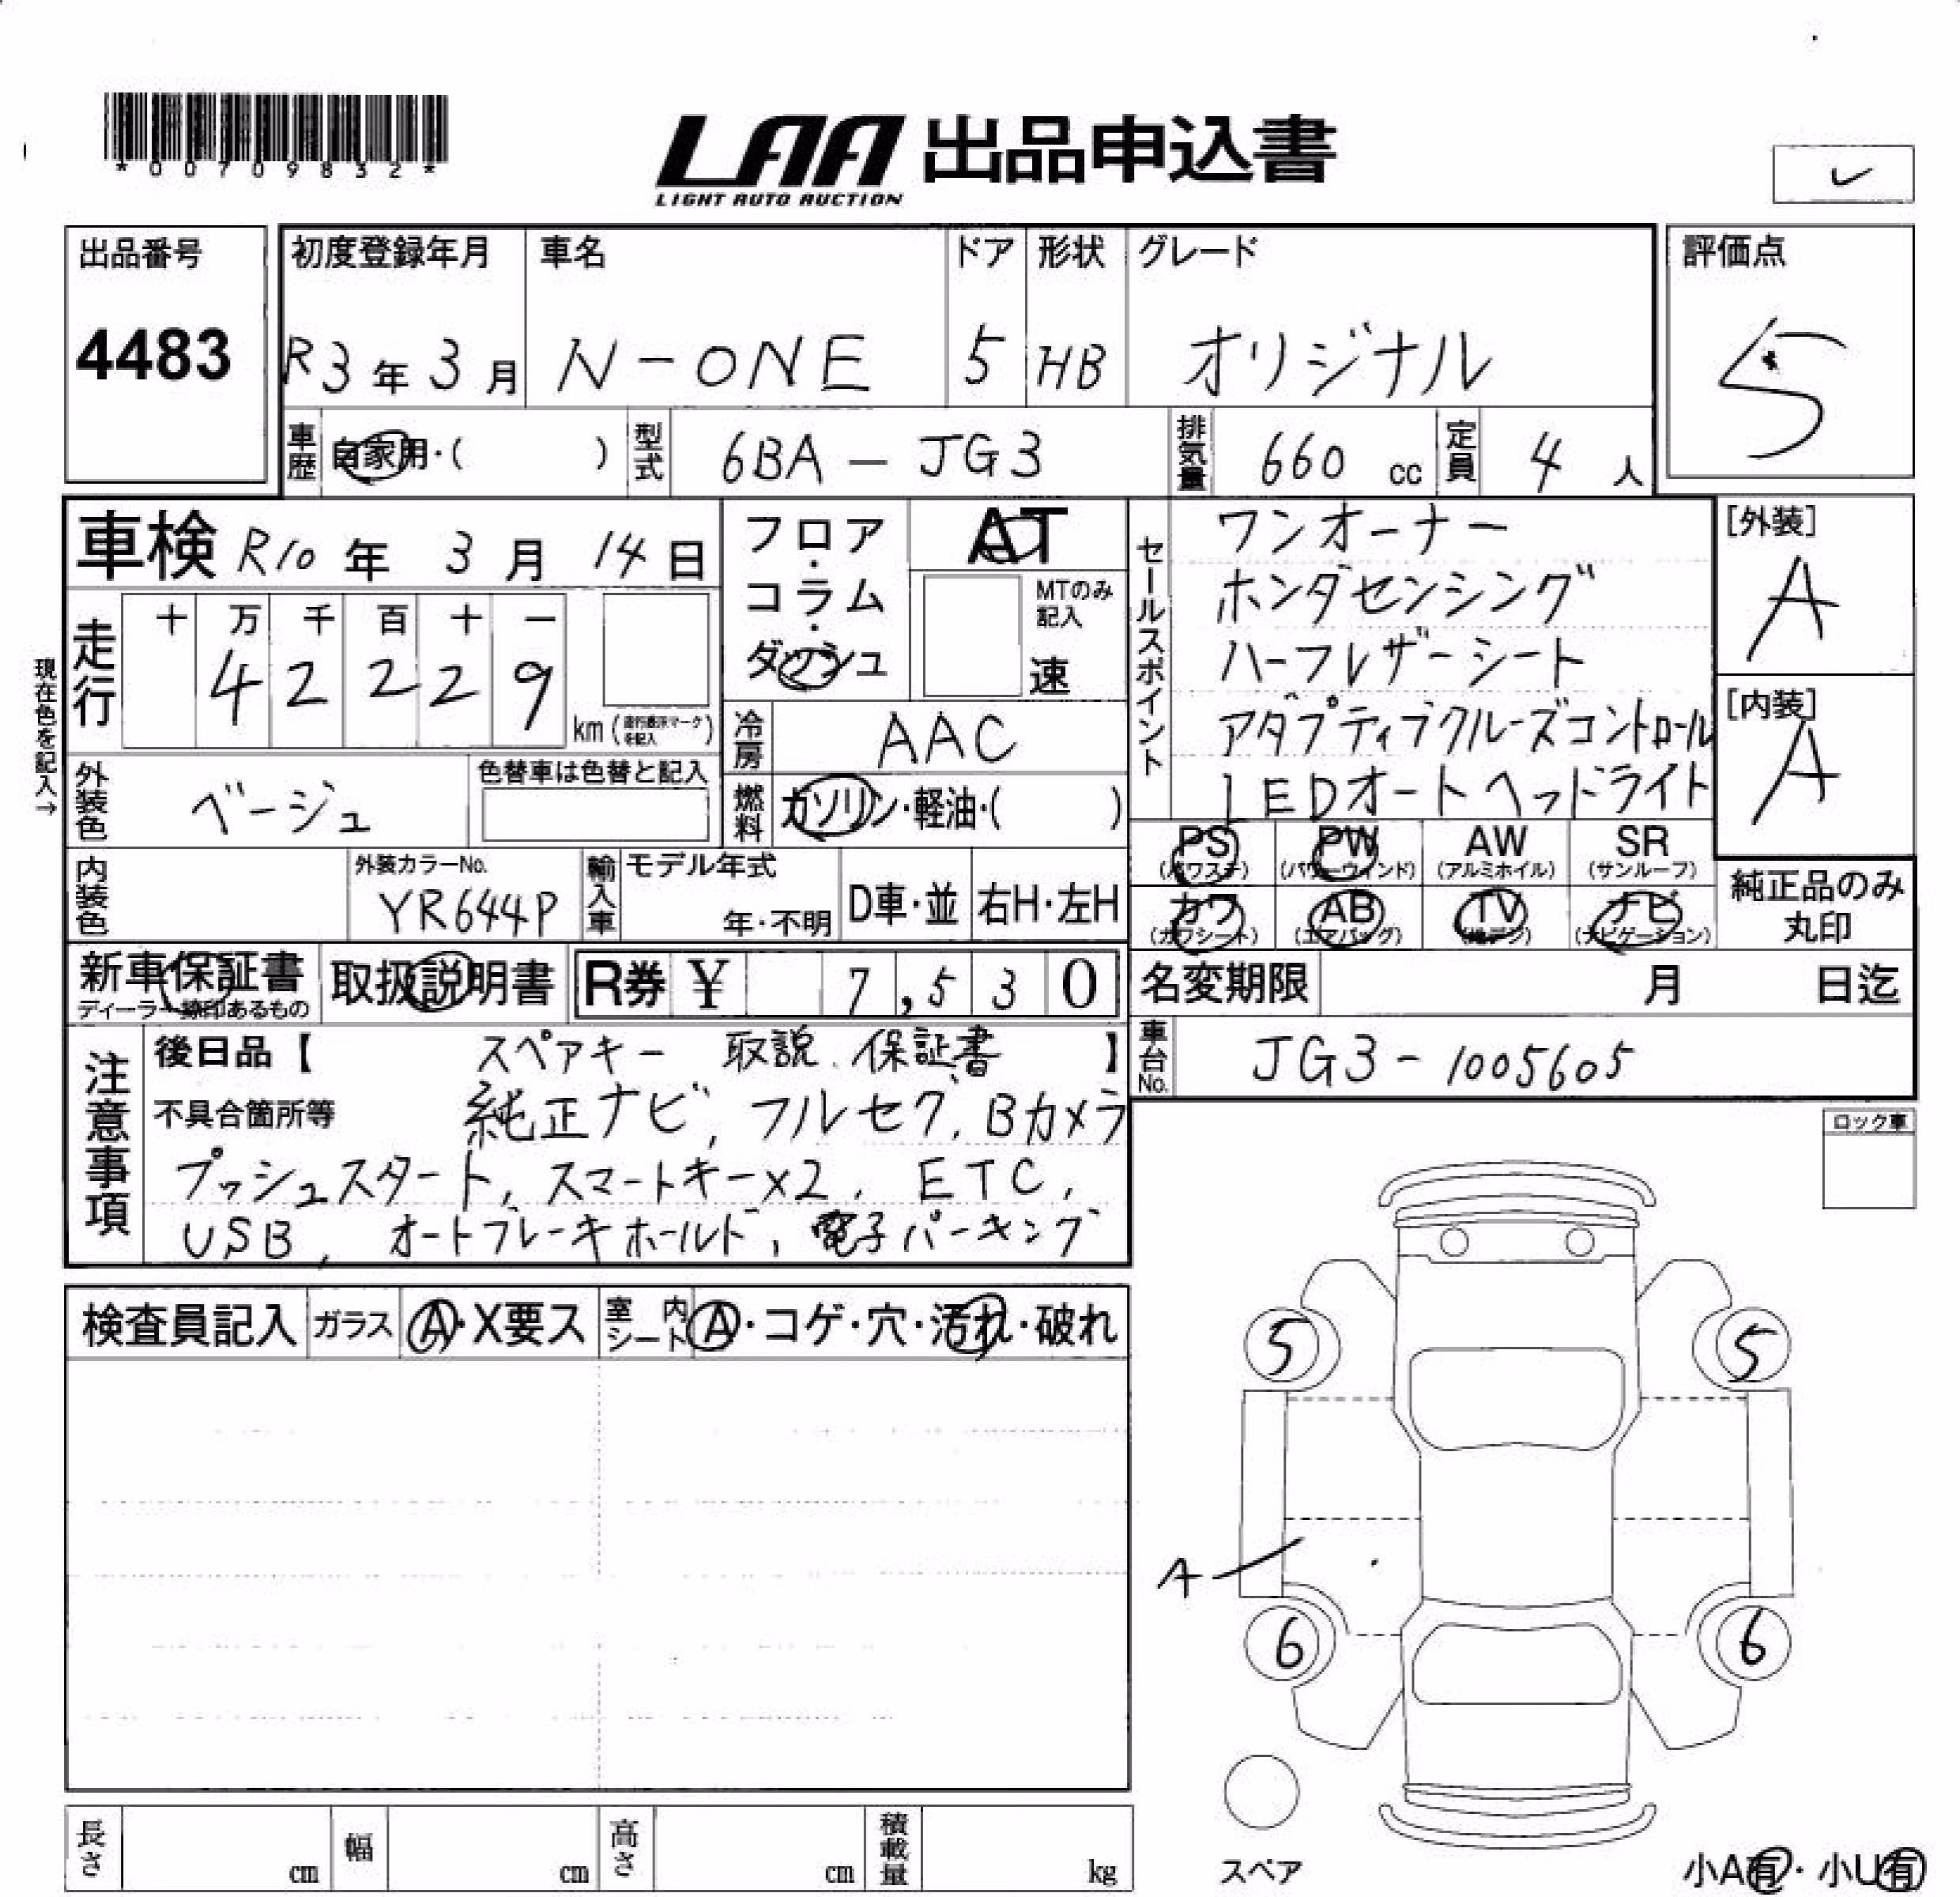 *00709832*
LAA 出品申込書
LIGHT AUTO AUCTION
出品番号
4483
初度登録年月
R3年3月
車名
N-ONE
ドア
5
形状
HB
グレード
オリジナル
評価点
5
車歴 自家用・( )
型式 6BA-JG3
排気量 660 cc
定員 4 人
車検 R10年 3月 14日
フロア・コラム・ダッシュ
AT
MTのみ記入
速
走行
十 万 千 百 十 一
4 2 2 2 9
km (走行表示マークを記入)
現在色を記入→
冷房 AAC
外装色 ベージュ
色替車は色替と記入
燃料 ガソリン・軽油・( )
セールスポイント
ワンオーナー
ホンダセンシング
ハーフレザーシート
アダプティブクルーズコントロール
LEDオートヘッドライト
[外装]
A
[内装]
A
内装色
外装カラーNo.
YR644P
輸入車
モデル年式
年・不明
D車・並
右H・左H
PS (パワステ)
PW (パワーウィンド)
AW (アルミホイル)
SR (サンルーフ)
カワ (カワシート)
AB (エアバッグ)
TV (地デジ)
ナビ (ナビゲーション)
純正品のみ
丸印
新車保証書
ディーラー捺印あるもの
取扱説明書
R券 ¥ 7,530
名変期限 月 日迄
車台No. JG3-1005605
注意事項
後日品【 スペアキー 取説.保証書 】
不具合箇所等 純正ナビ, フルセグ, Bカメラ
プッシュスタート, スマートキー×2, ETC,
USB, オートブレーキホールド, 電子パーキング
ロック車
検査員記入
ガラス A・X要ス
室内シート A・コゲ・穴・汚れ・破れ
5 5
A
6 6
スペア
長さ cm
幅 cm
高さ cm
積載量 kg
小A有・小U有